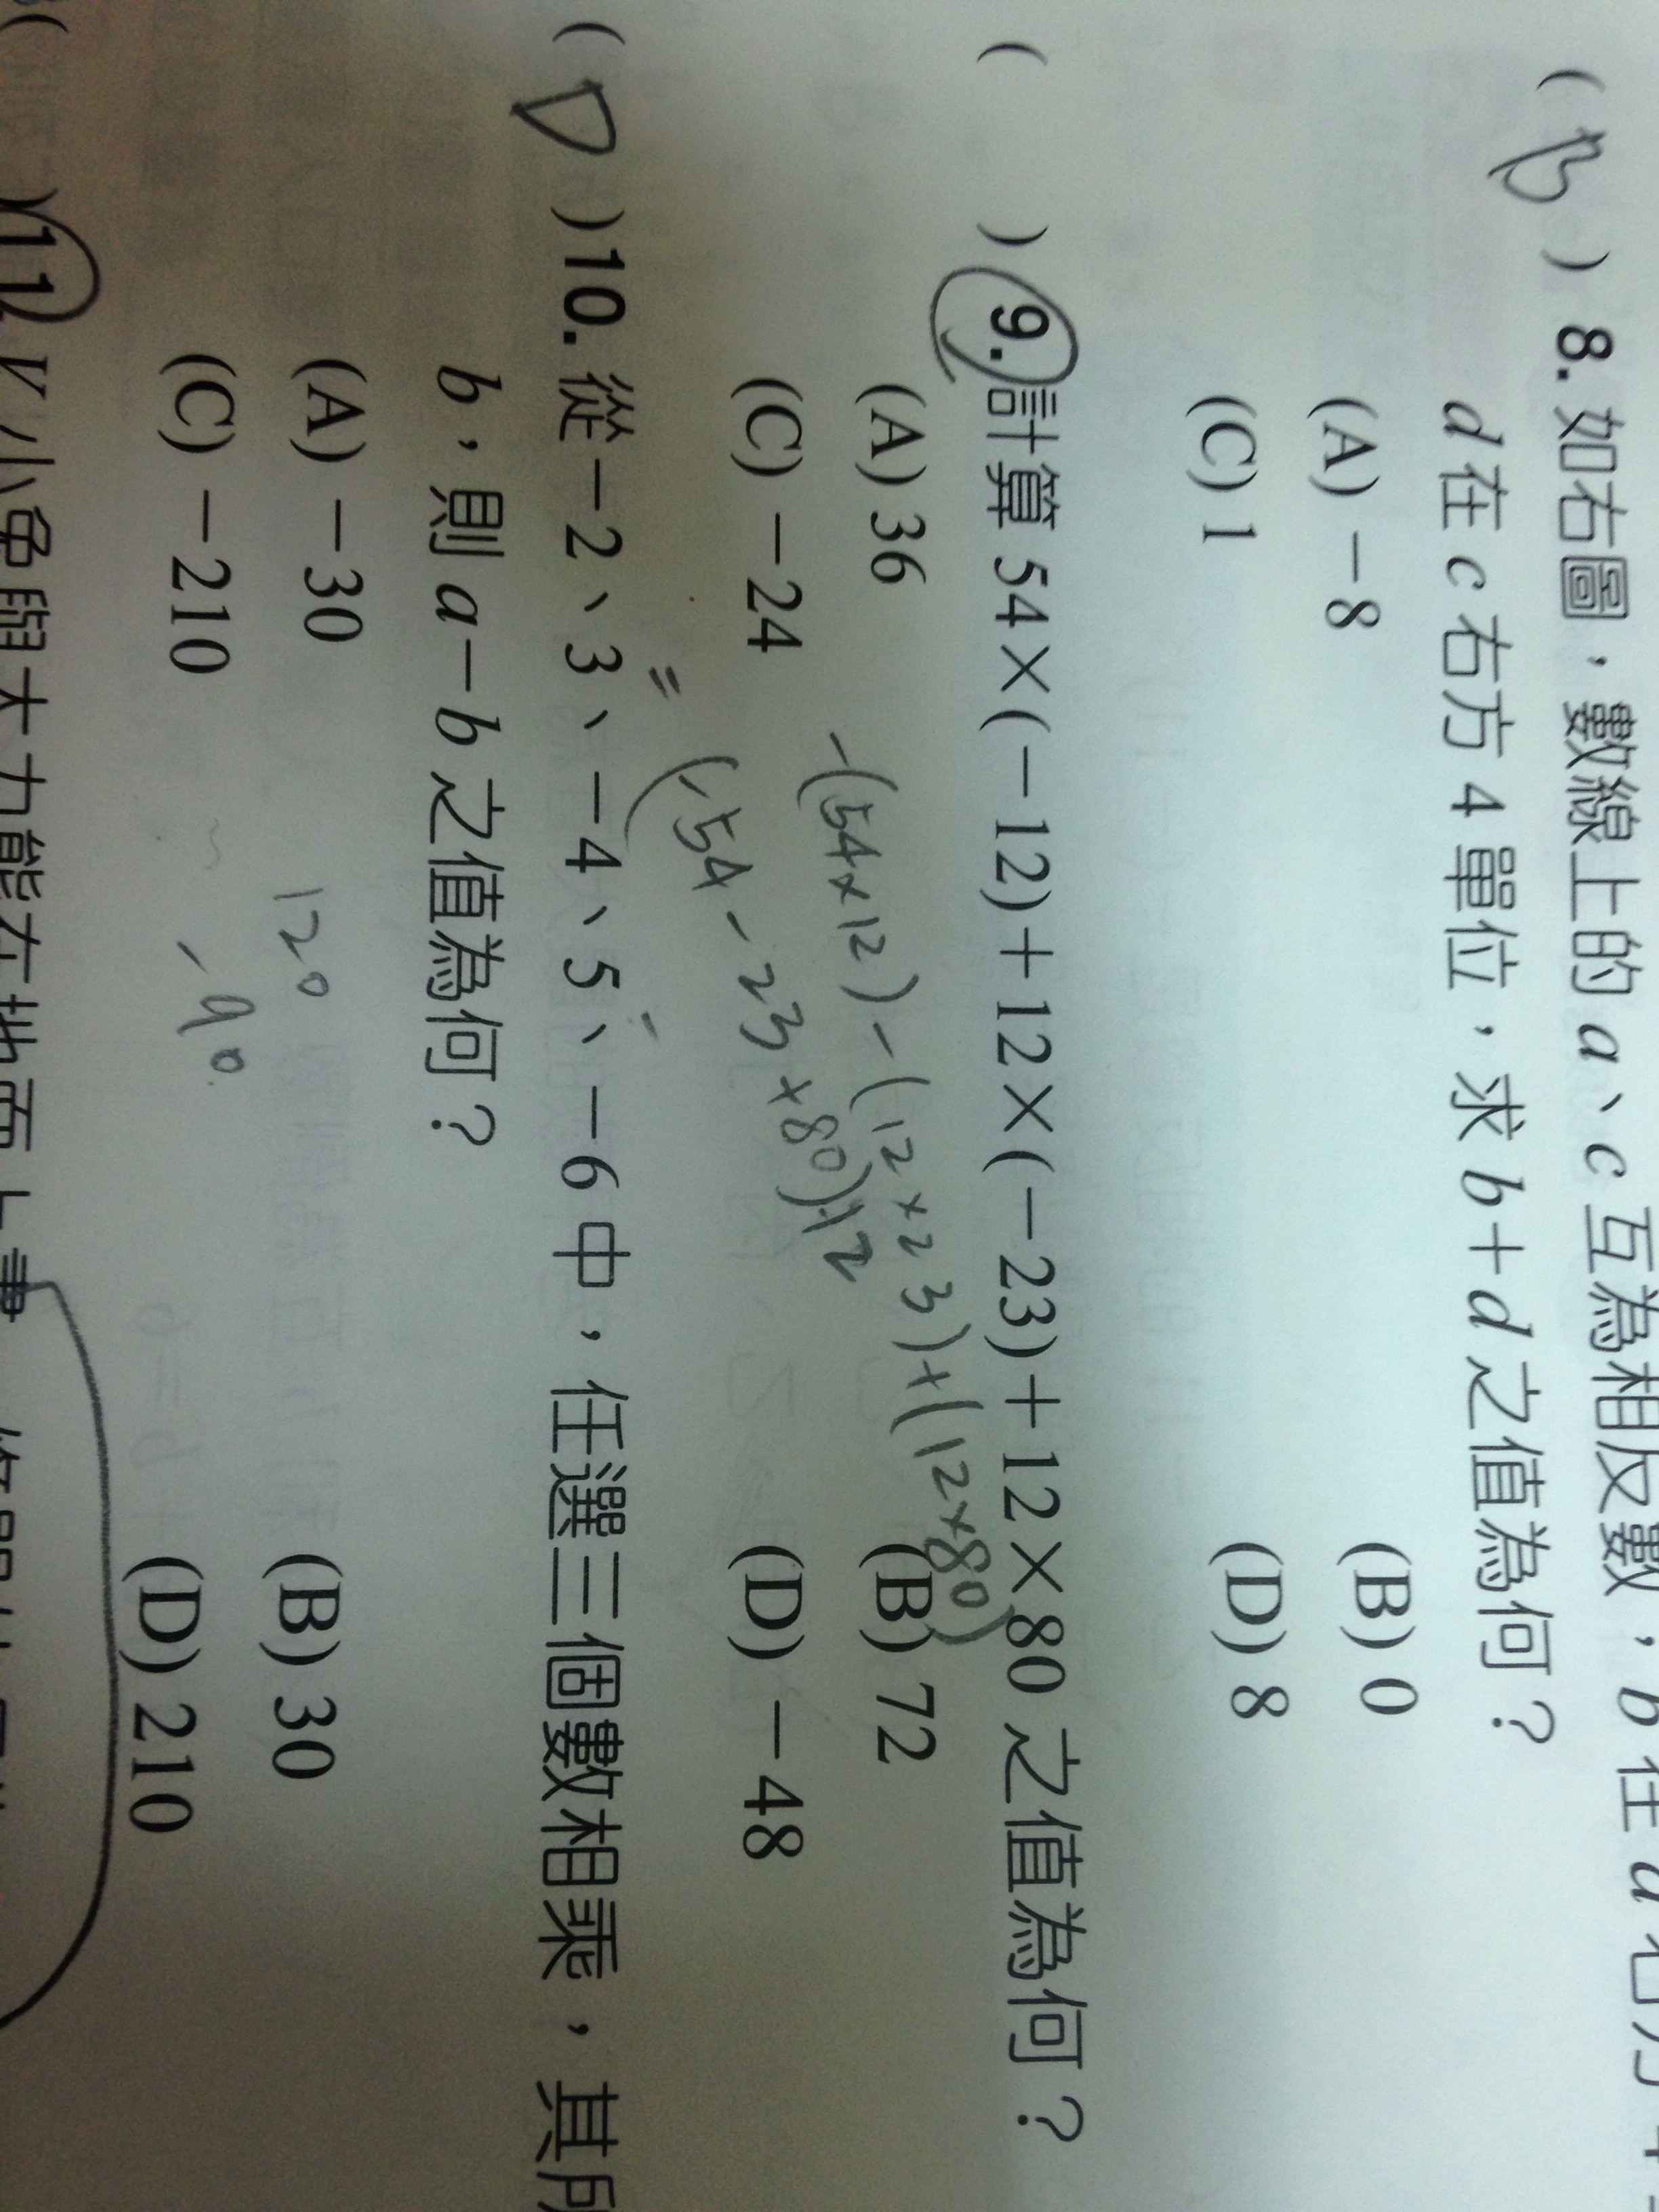 ( B ) 8. 如右圖，數線上的 a、c 互為相反數，b 在 a 右方 4
d 在 c 右方 4 單位，求 b＋d 之值為何？
(A) －8 (B) 0
(C) 1 (D) 8
( ) 9. 計算 54×(－12)＋12×(－23)＋12×80 之值為何？
(A) 36 (B) 72
-(54×12)-(12×23)+(12×80)
(C) －24 (D) －48
=(-54-23+80)12
( D )10. 從－2、3、－4、5、－6 中，任選三個數相乘，其所
b，則 a－b 之值為何？
(A) －30 (B) 30
120
(C) －210 (D) 210
-90
( )11.